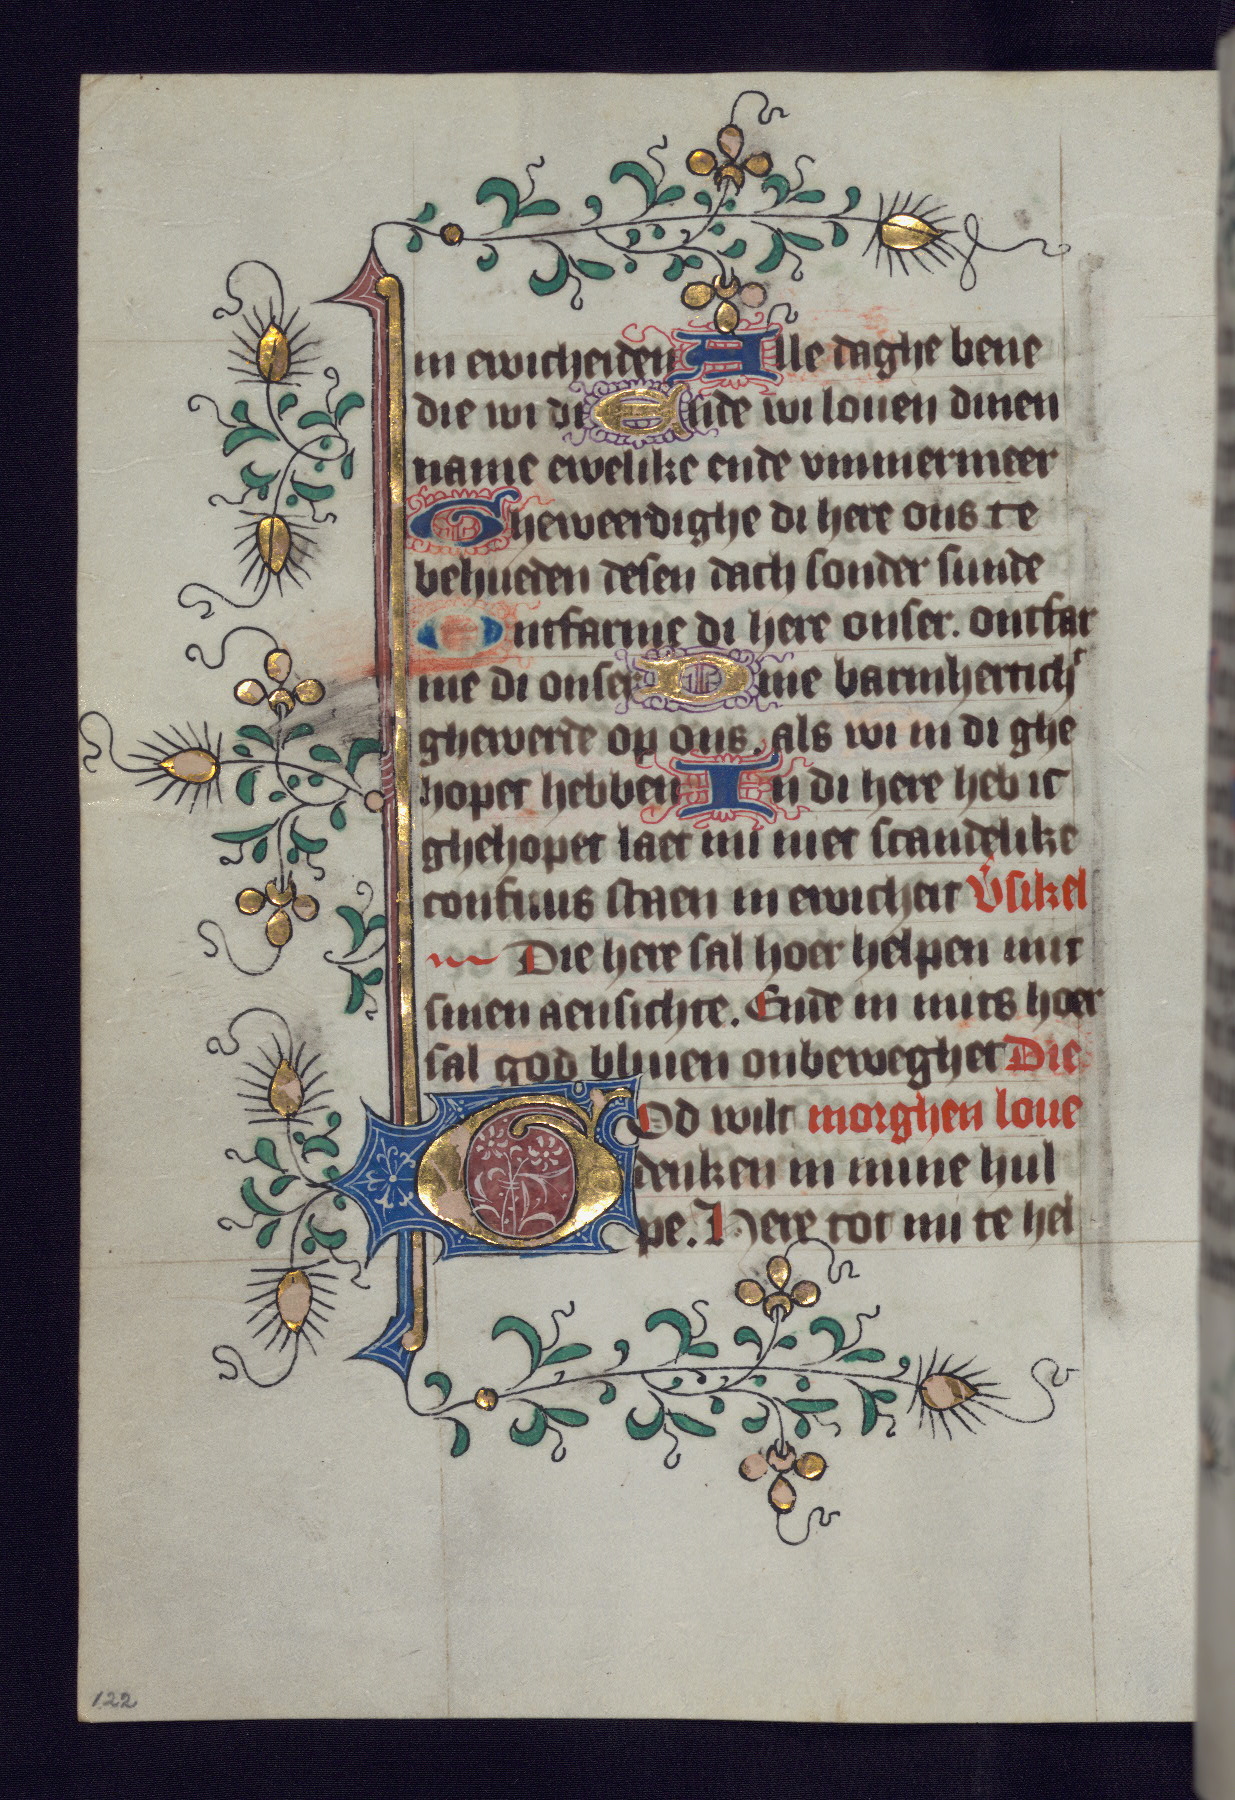 in ewicheiden Alle daghe bene
die wi di Ende wi louen dinen
name ewelike ende vmmermeer
Gheweerdighe di here ons te
behueden desen dach sonder sunde
Ontfarme di here onser. ontfar
me di onser Dine barmhertich
ghewerde op ons. als wi in di ghe
hopet hebben In di here heb ic
ghehopet laet mi niet scandelike
confuus staen in ewicheit Vsikel
Die here sal hoer helpen mit
sinen aensichte. Ende in mits hoer
sal god bliuen onbeweghet Die
God wilt morghen loue
denken in mine hul
pe. Here tot mi te hel
122